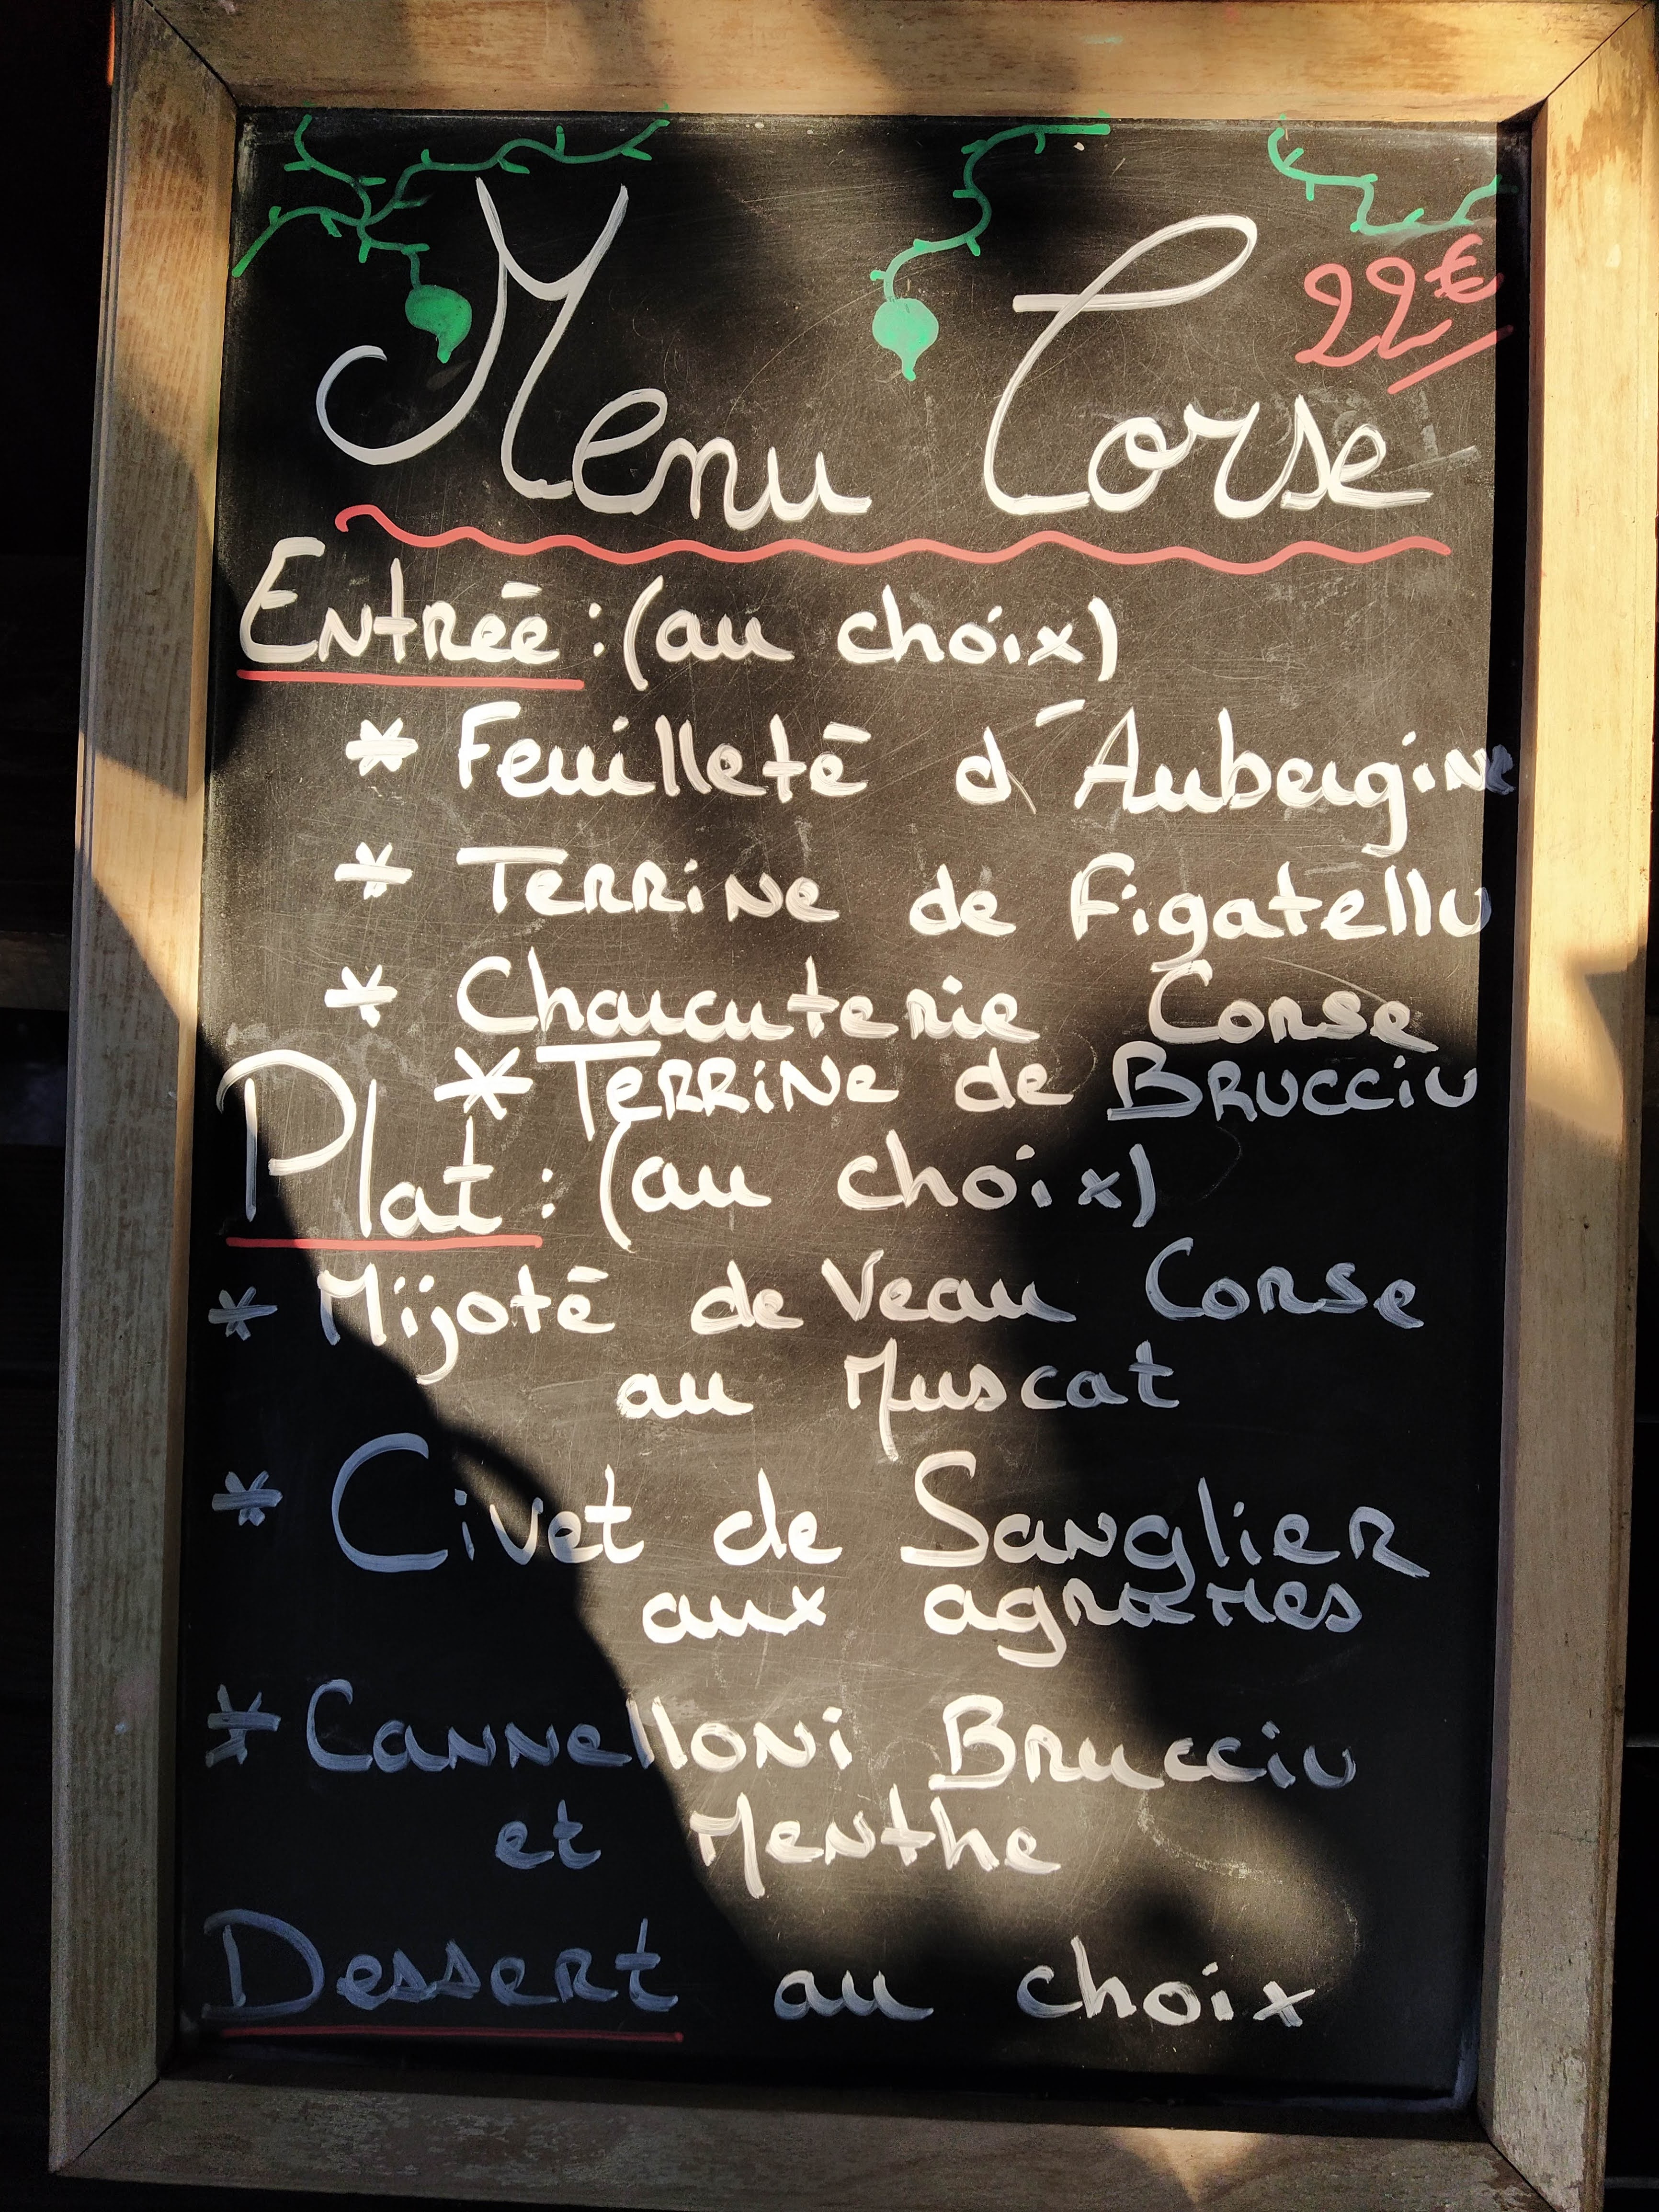 22€
Menu Corse
Entrée : (au choix)
* Feuilleté d'Aubergine
* Terrine de Figatellu
* Charcuterie Corse
* Terrine de Brucciu
Plat : (au choix)
* Mijoté de Veau Corse
au Muscat
* Civet de Sanglier
aux agrumes
* Cannelloni Brucciu
et Menthe
Dessert au choix